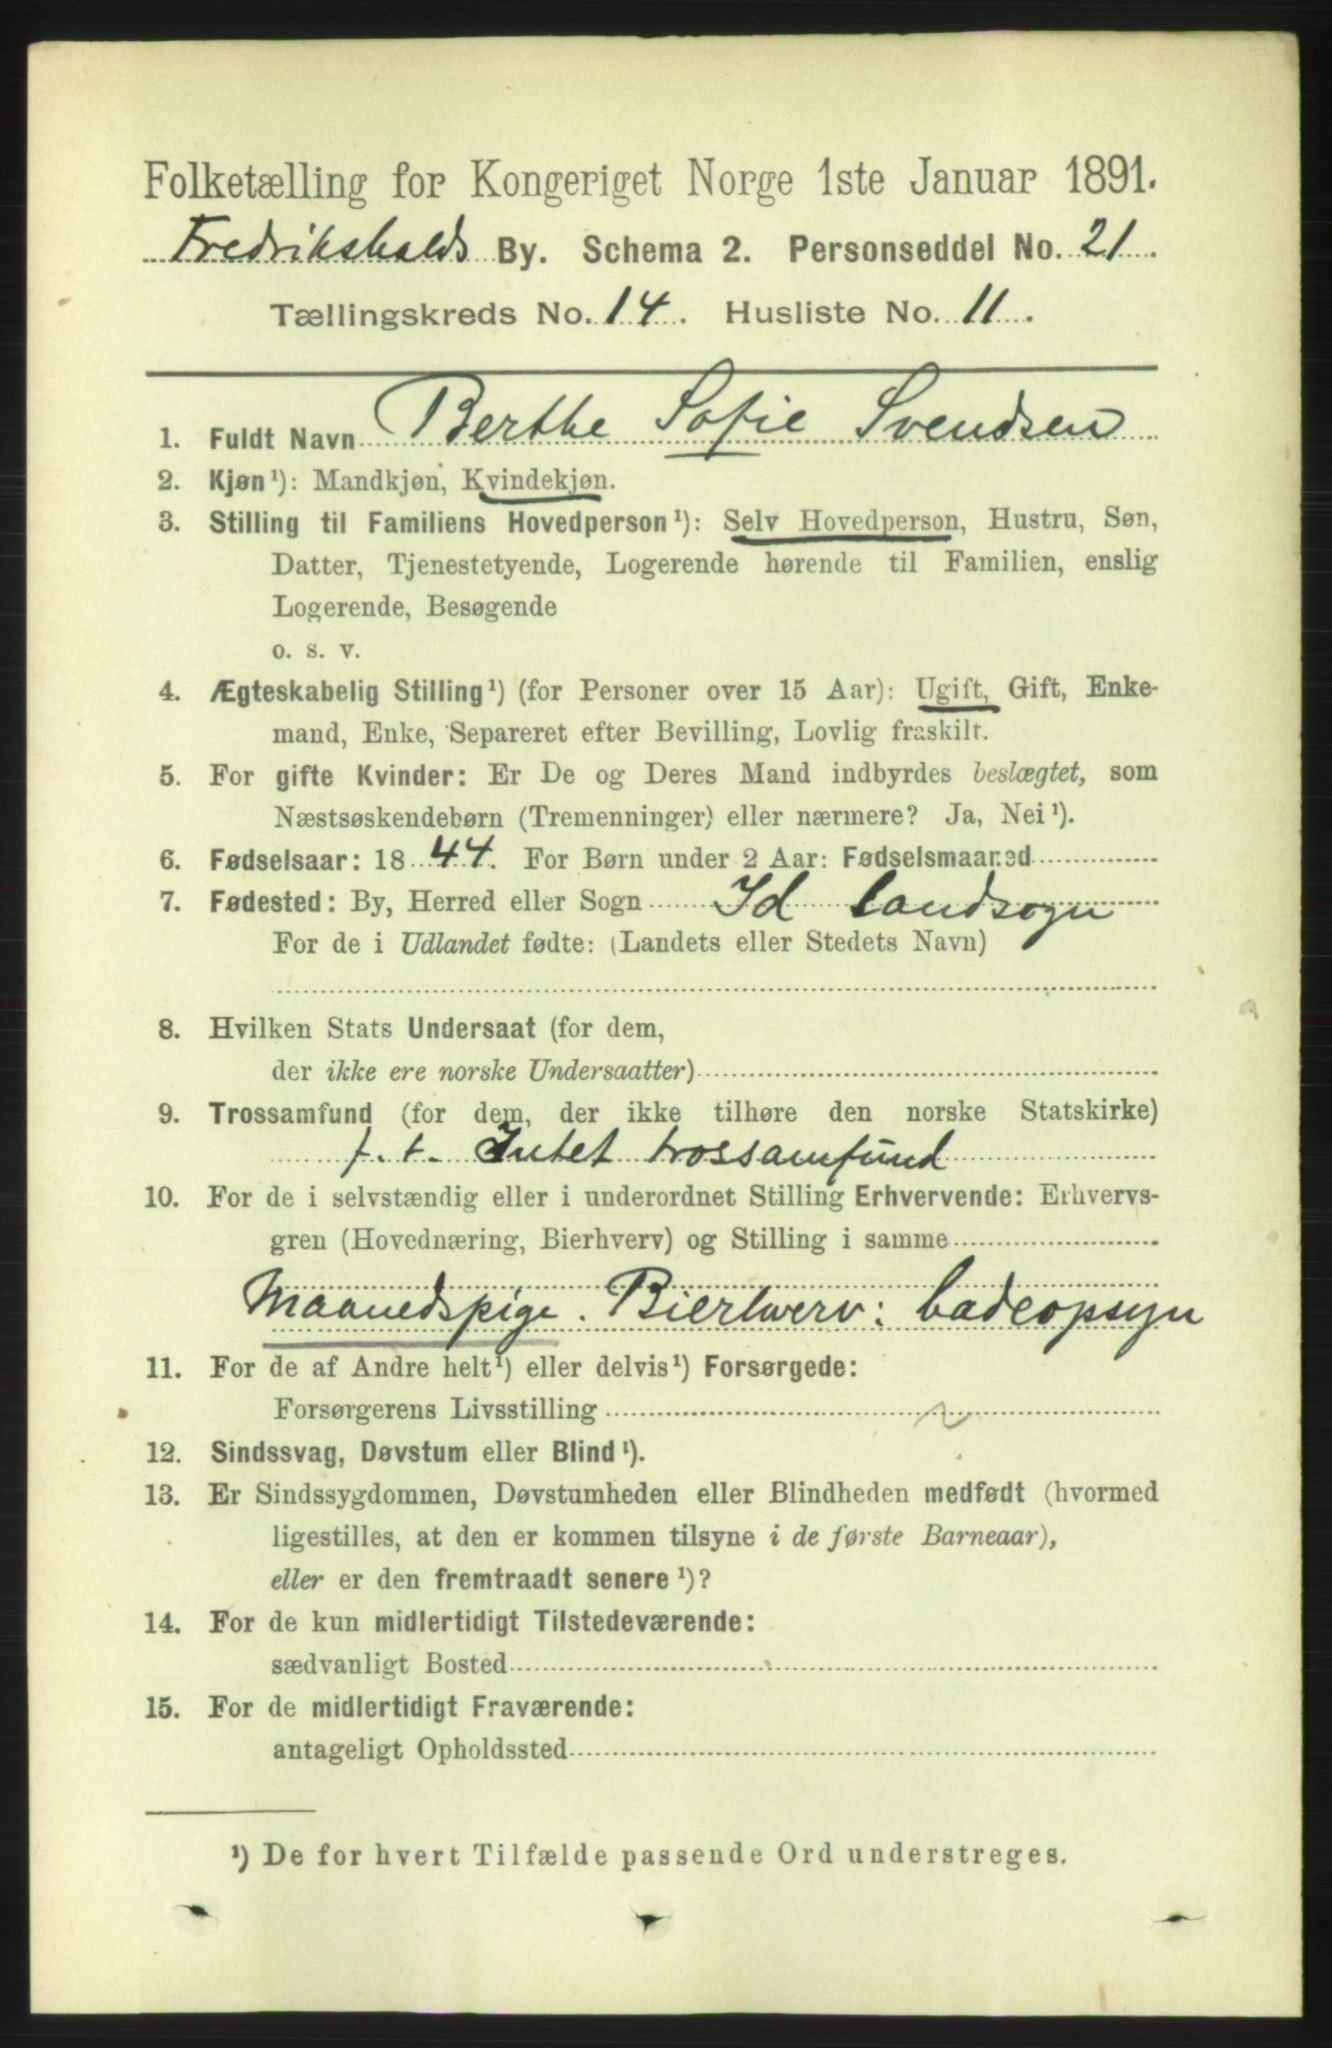 Folketælling for Kongeriget Norge 1ste Januar 1891.
Fredrikshalds By. Schema 2. Personseddel No. 21.
Tællingskreds No. 14. Husliste No. 11.
1. Fuldt Navn Berthe Sofie Svendsen
2. Kjøn¹): Mandkjøn, Kvindekjøn.
3. Stilling til Familiens Hovedperson¹): Selv Hovedperson, Hustru, Søn,
Datter, Tjenestetyende, Logerende hørende til Familien, enslig
Logerende, Besøgende
o. s. v.
4. Ægteskabelig Stilling¹) (for Personer over 15 Aar): Ugift, Gift, Enke-
mand, Enke, Separeret efter Bevilling, Lovlig fraskilt.
5. For gifte Kvinder: Er De og Deres Mand indbyrdes beslægtet, som
Næstsøskendebørn (Tremenninger) eller nærmere? Ja, Nei¹).
6. Fødselsaar: 1844. For Børn under 2 Aar: Fødselsmaaned
7. Fødested: By, Herred eller Sogn Id landsogn
For de i Udlandet fødte: (Landets eller Stedets Navn)
8. Hvilken Stats Undersaat (for dem,
der ikke ere norske Undersaatter)
9. Trossamfund (for dem, der ikke tilhøre den norske Statskirke)
f. t. Intet trossamfund
10. For de i selvstændig eller i underordnet Stilling Erhvervende: Erhvervs-
gren (Hovednæring, Bierhverv) og Stilling i samme
Maanedspige. Bierhverv: badeopsyn
11. For de af Andre helt¹) eller delvis¹) Forsørgede:
Forsørgerens Livsstilling
12. Sindssvag, Døvstum eller Blind¹).
13. Er Sindssygdommen, Døvstumheden eller Blindheden medfødt (hvormed
ligestilles, at den er kommen tilsyne i de første Barneaar),
eller er den fremtraadt senere¹)?
14. For de kun midlertidigt Tilstedeværende:
sædvanligt Bosted
15. For de midlertidigt Fraværende:
antageligt Opholdssted
¹) De for hvert Tilfælde passende Ord understreges.